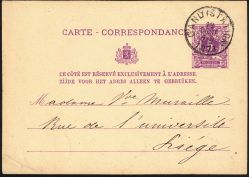 CARTE-CORRESPONDANCE
GAND (STATION)
CE CÔTÉ EST RÉSERVÉ EXCLUSIVEMENT À L'ADRESSE.
ZIJDE VOOR HET ADRES ALLEEN TE GEBRUIKEN.
Madame Vve Muraille
Rue de l'université
Liege